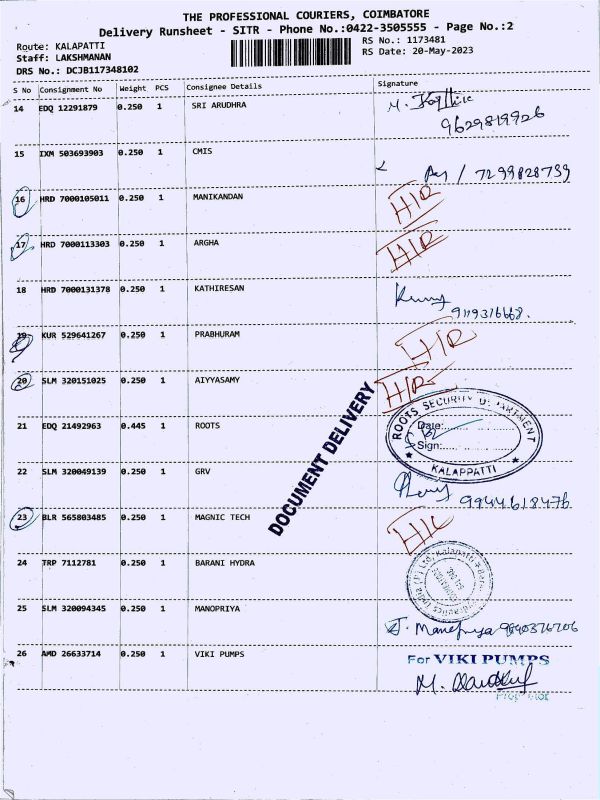 THE PROFESSIONAL COURIERS, COIMBATORE
Delivery Runsheet - SITR - Phone No.:0422-3505555 - Page No.:2
Route: KALAPATTI
Staff: LAKSHMANAN
DRS No.: DCJB117348102
RS No.: 1173481
RS Date: 20-May-2023
S No Consignment No Weight PCS Consignee Details Signature
14 EDQ 12291879 0.250 1 SRI ARUDHRA M.
9629819926
15 IXM 503693903 0.250 1 CMIS / 7299828739
16 HRD 7000105011 0.250 1 MANIKANDAN H/R
17 HRD 7000113303 0.250 1 ARGHA H/R
18 HRD 7000131378 0.250 1 KATHIRESAN
9119376668.
19 KUR 529641267 0.250 1 PRABHURAM H/R
20 SLM 320151025 0.250 1 AIYYASAMY H/R
DOCUMENT DELIVERY
21 EDQ 21492963 0.445 1 ROOTS
ROOTS SECURITY DEPARTMENT
Date:
Sign:
KALAPPATTI
22 SLM 320049139 0.250 1 GRV
9944618476
23 BLR 565803485 0.250 1 MAGNIC TECH
24 TRP 7112781 0.250 1 BARANI HYDRA
25 SLM 320094345 0.250 1 MANOPRIYA J. Manopriya 9840376706
26 AMD 26633714 0.250 1 VIKI PUMPS For VIKI PUMPS
M.